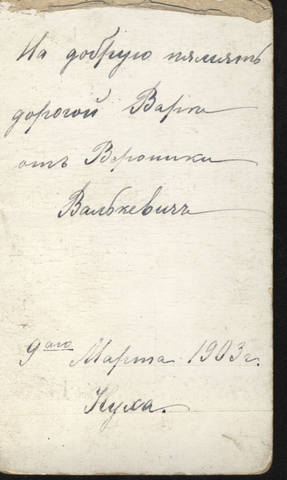 На добрую память
дорогой Варѣ
отъ Вероники
Валькевичъ
9аго Марта 1903 г.
Нуха.